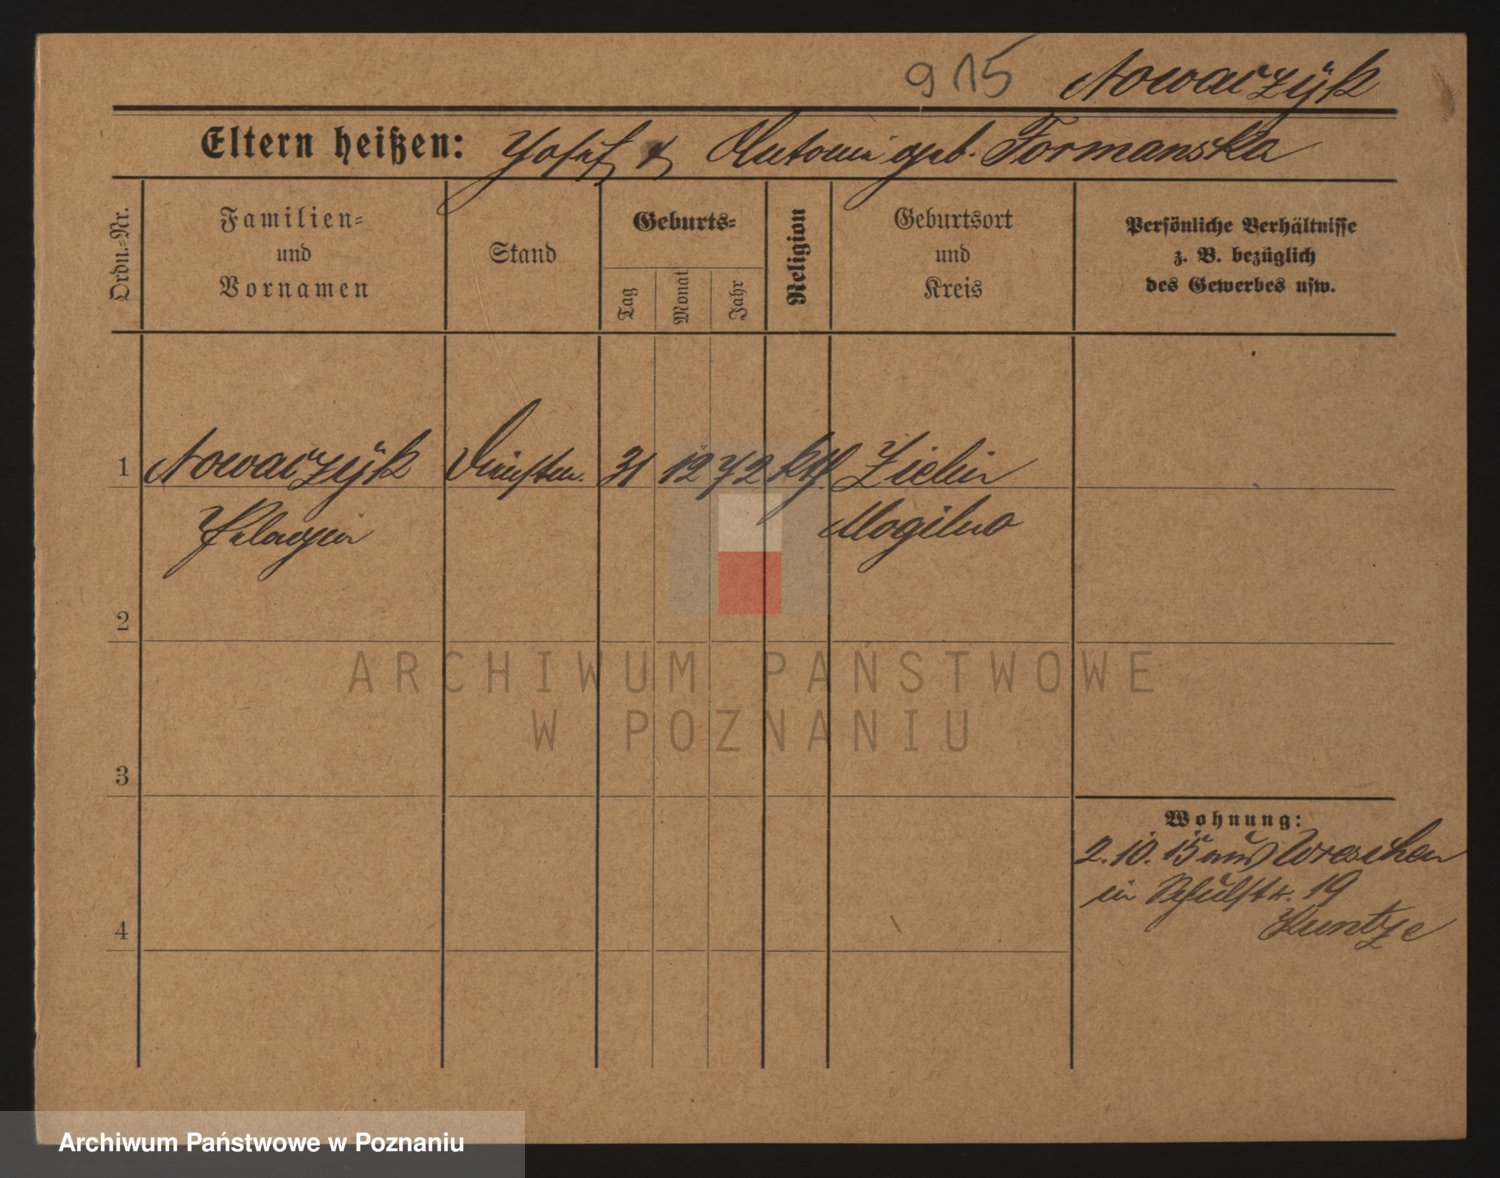 915 Nowaczÿk
Eltern heißen: Josef & Antonie geb. Formanska
Ordn.=Nr.
Familien=
und
Vornamen
Stand
Geburts=
Tag
Monat
Jahr
Religion
Geburtsort
und
Kreis
Persönliche Verhältnisse
z. B. bezüglich
des Gewerbes usw.
1 Nowaczÿk 31 12 72 kth Zielin
Pelagia Mogilno
2
3
4
Wohnung:
2.10.15 aus Wreschen
in Schulstr. 19
Kuntze
ARCHIWUM PAŃSTWOWE
W POZNANIU
Archiwum Państwowe w Poznaniu